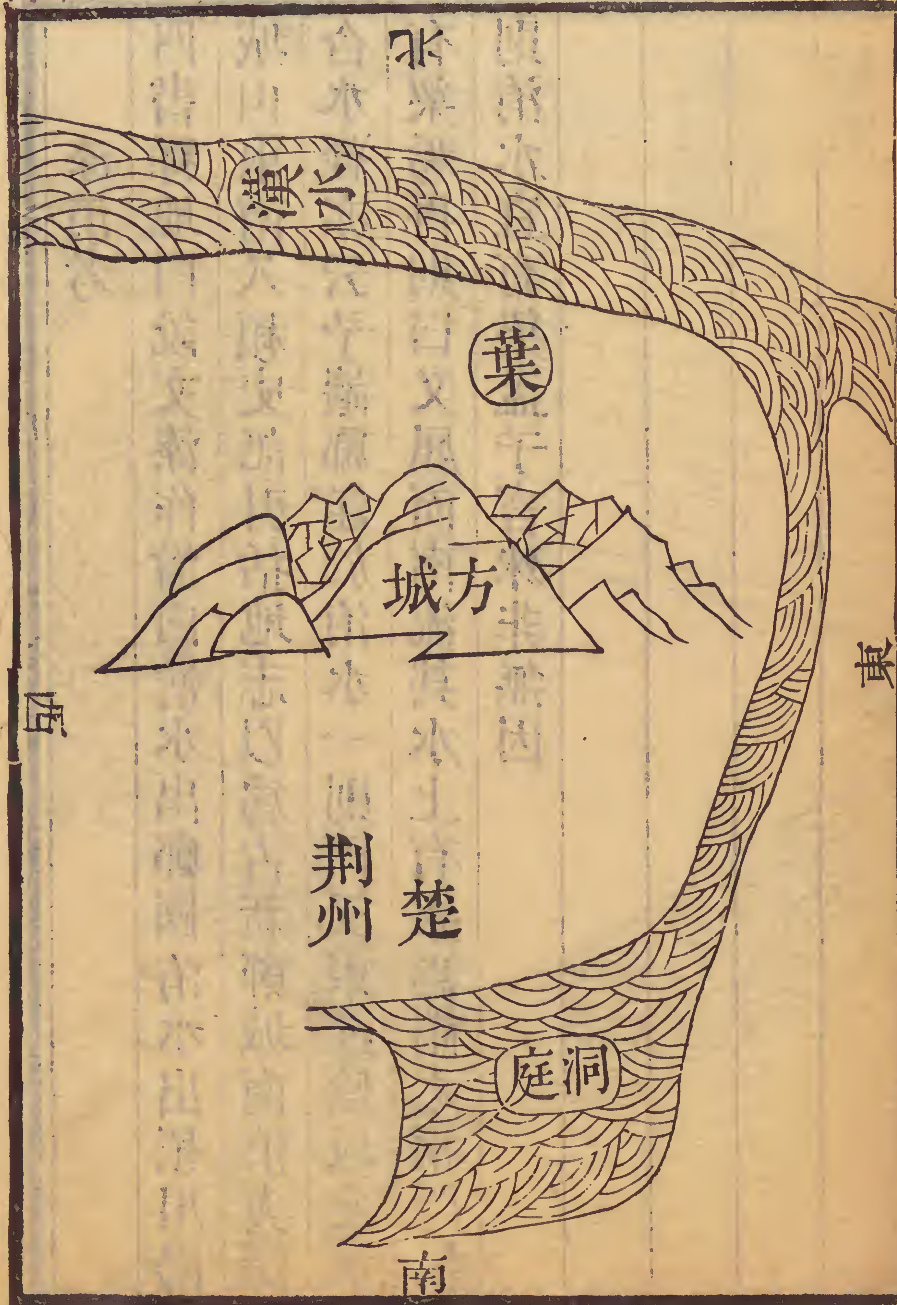 北
漢水
葉
方城
東
西
荆州
楚
洞庭
南